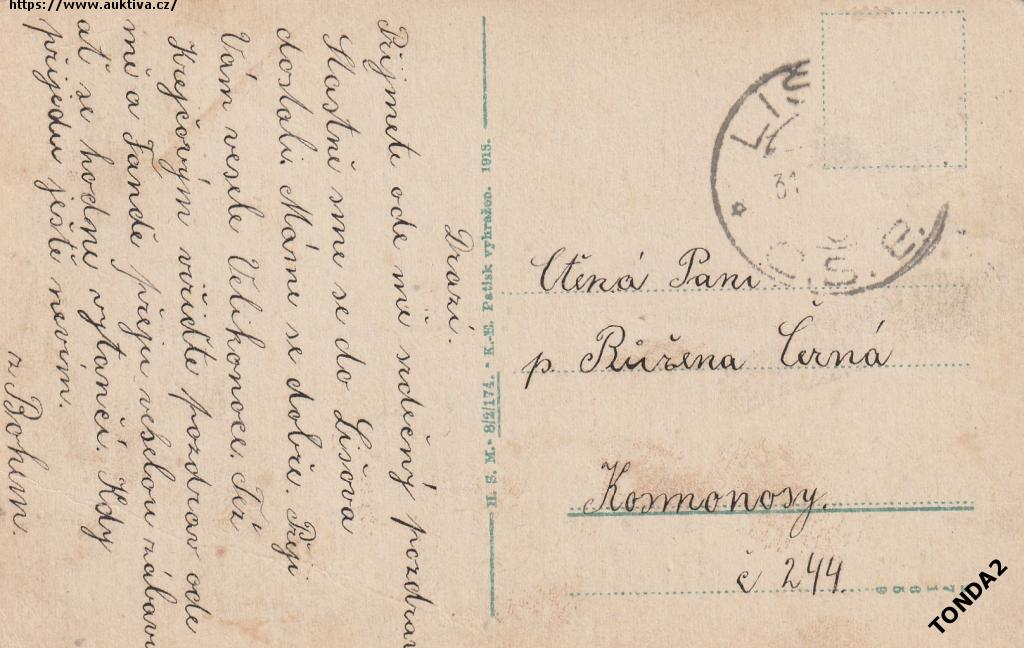 https://www.auktiva.cz/
Drazí.
Přijmete ode mě srdečný pozdrav
Štastně sme se do Lišova
dostali. Máme se dobře. Přeji
Vám veselé Velikonoce. Též
Krejčovým vyřiďte pozdrav ode
mě a Fandě přeju veselou zábavu
ať se hodně vytančí. Kdy
přijedu ještě nevím.
z Bohem.
H. S. M. • 8/2/174. • K.-E. Patisk vyhražen. 1918.
LIŠ
31
Č.S.R.
Ctěná Paní
p. Růžena Černá
Kosmonosy.
č 244.
TONDA2